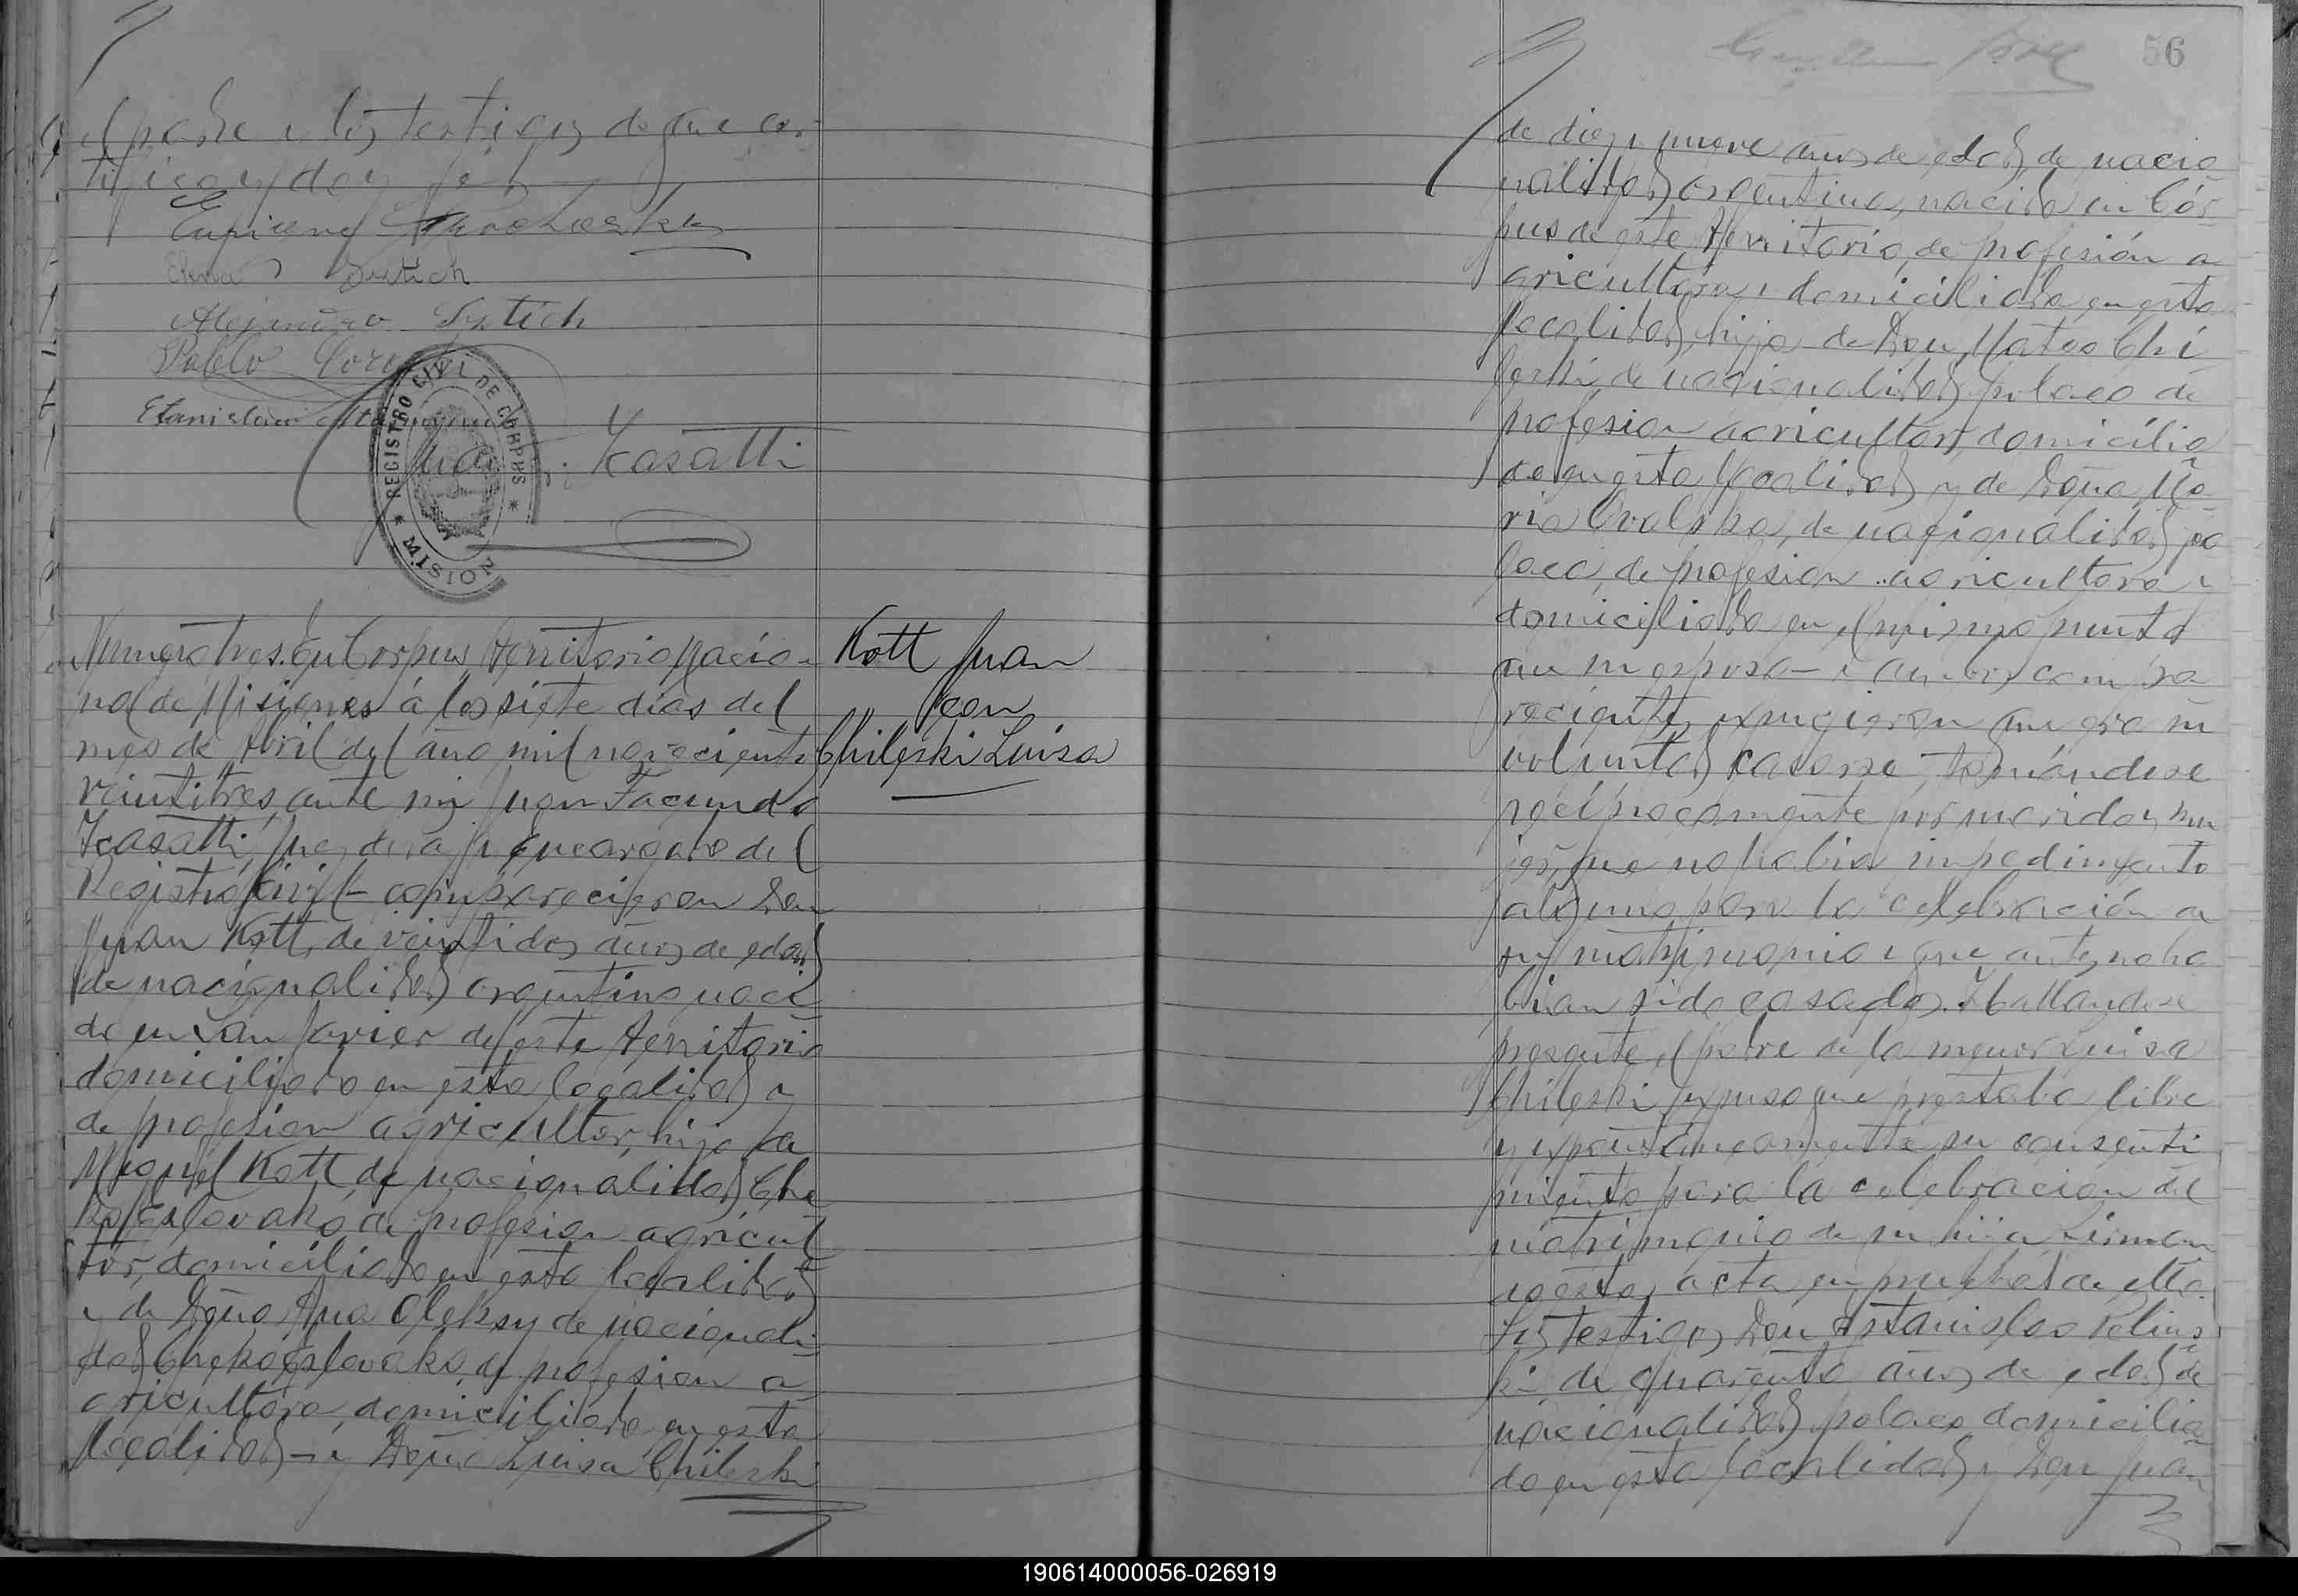 el padre i los testigos de que cer-
tifico y doy fé
Elena Sutich
Alejandro Sutich
Pablo
Estanislao
REGISTRO CIVIL DE CORPUS * MISIONES *
Juan F. Icasatti
Numero tres. En Corpus, Territorio Nacio-
nal de Misiones á los siete dias del
mes de Abril del año mil novecientos
veintitres, ante mi Juan Facundo
Icasatti, Juez de Paz i encargado del
Registro Civil- comparecieron Don
Juan Kott, de veintidos años de edad
de nacionalidad argentino naci-
do en San Javier de este Territorio
domiciliado en esta localidad y
de profesion agricultor, hijo de
Miguel Kott de nacionalidad Che
koeslovako de profesion agricul
tor, domiciliado en esta localidad
i de Doña Ana Oleksy de nacionali-
dad Chekoeslovako, de profesion a-
gricultora, domiciliada en esta
localidad - i Doña Luisa Chileski
Kott Juan
con
Chileski Luisa
56
de diez i nueve años de edad, de nacio-
nalidad argentina, nacida en Cór-
pus de este Territorio, de profesión a-
gricultora i domiciliada en esta
localidad, hija de Don Mateo Chi
leski de nacionalidad polaco de
profesion agricultor, domicilia
do en esta localidad y de Doña Ma-
ria de nacionalidad po
laca, de profesion agricultora i
domiciliada en el mismo punto
que su esposo - i ambos compa
recientes expusieron que era su
voluntad casarse, tomándose
recíprocamente por marido y mu
jer, que no habia impedimento
alguno para la celebración de
su matrimonio i que antes no ha
bian sido casados. Hallandose
presente el padre de la menor Luisa
Chileski expuso que prestaba libre
y expontáneamente su consenti
miento para la celebracion del
matrimonio de su hija i firman
do esta acta en prueba de ello.
Los testigos Don Estanislao Pelins
ki de cuarenta años de edad de
nacionalidad polaco domicilia-
do en esta localidad i Don Juan
190614000056-026919